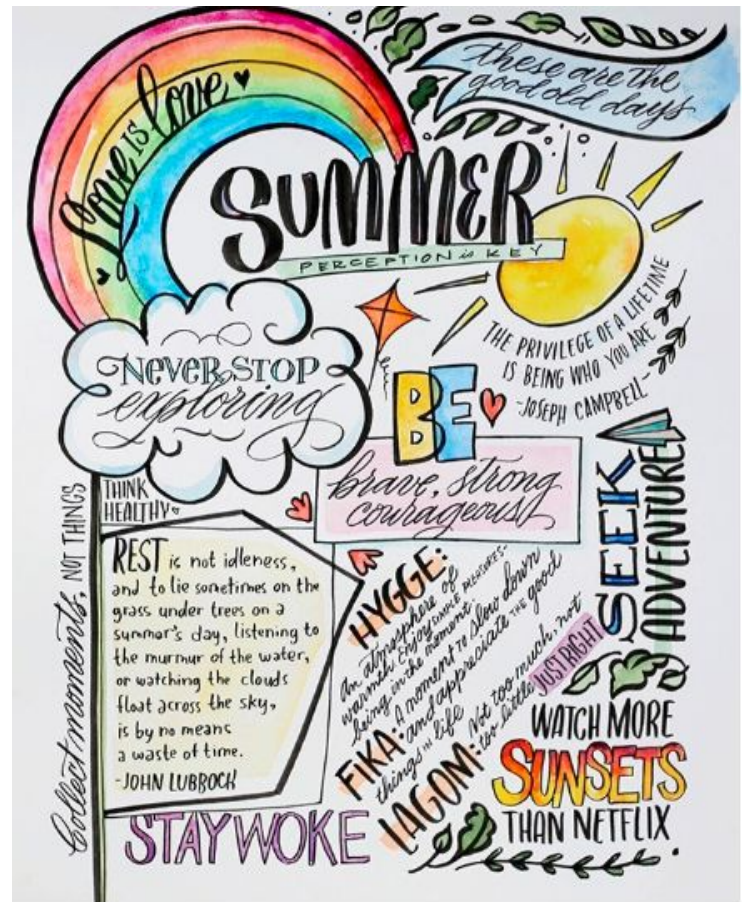 these are the
good old days
Love is love
SUMMER
PERCEPTION is KEY
THE PRIVILEGE OF A LIFETIME
IS BEING WHO YOU ARE
-JOSEPH CAMPBELL-
NEVER STOP
exploring
BE
brave, strong
courageous
SEEK
ADVENTURE
THINK
HEALTHY
Collect moments, NOT THINGS
REST is not idleness,
and to lie sometimes on the
grass under trees on a
summer's day, listening to
the murmur of the water,
or watching the clouds
float across the sky,
is by no means
a waste of time.
-JOHN LUBBOCK
HYGGE:
an atmosphere of
warmth. Enjoy SIMPLE PLEASURES-
being in the moment
FIKA: A moment to slow down
and appreciate THE good
things IN life
LAGOM: Not too much, not
too little JUST RIGHT
WATCH MORE
SUNSETS
THAN NETFLIX
STAY WOKE